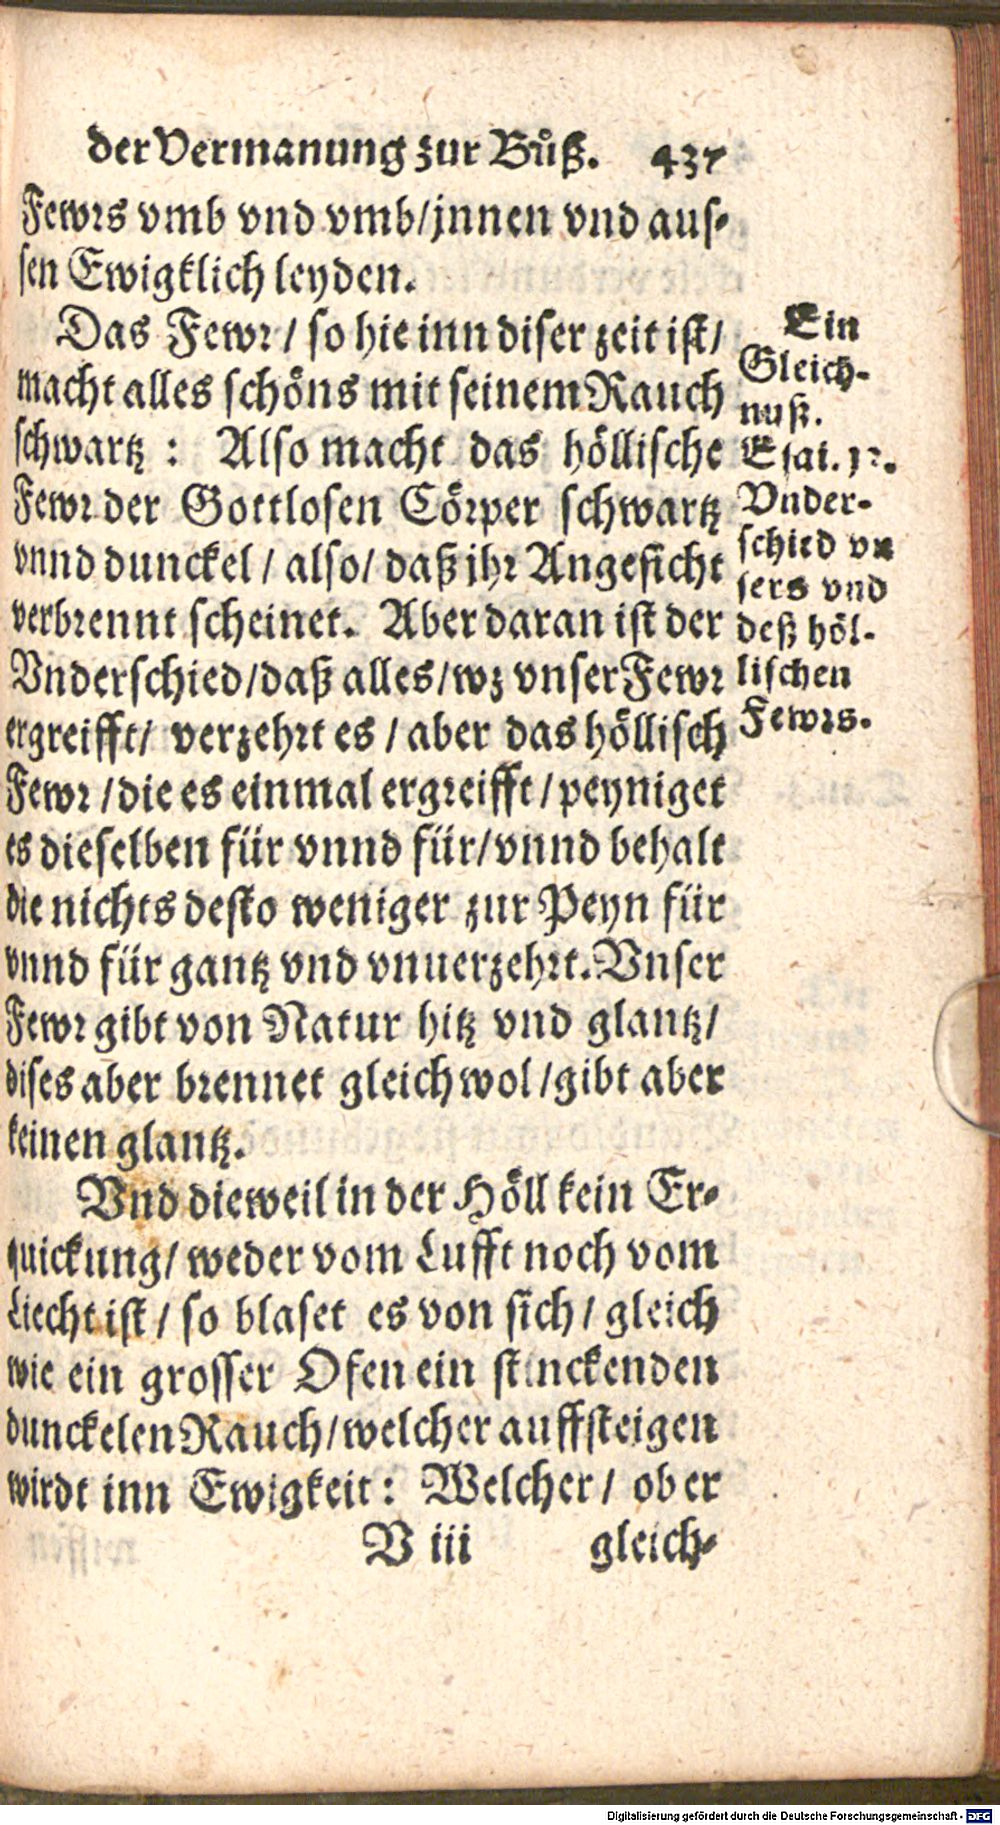 der Vermanung zur Bůß. 437
Fewrs vmb vnd vmb/jnnen vnd aus-
sen Ewigklich leyden.
Das Fewr / so hie inn diser zeit ist/
macht alles schöns mit seinem Rauch
schwartz : Also macht das höllische
Fewr der Gottlosen Cörper schwartz
vnnd dunckel / also/ daß jhr Angesicht
verbrennt scheinet. Aber daran ist der
Vnderschied/daß alles/wz vnser Fewr
ergreifft/ verzehrt es / aber das höllisch
Fewr /die es einmal ergreifft/peyniget
es dieselben für vnnd für/vnnd behalt
die nichts desto weniger zur Peyn für
vnnd für gantz vnd vnuerzehrt. Vnser
Fewr gibt von Natur hitz vnd glantz/
dises aber brennet gleich wol /gibt aber
keinen glantz.
Vnd dieweil in der Höll kein Er-
quickung/ weder vom Lufft noch vom
Liecht ist / so blaset es von sich / gleich
wie ein grosser Ofen ein stinckenden
dunckelen Rauch/welcher auffsteigen
wirdt inn Ewigkeit : Welcher / ob er
V iii gleich-
Ein
Gleich-
nuß.
Esai.
Vnder-
schied vn
sers vnd
deß höl-
lischen
Fewrs.
Digitalisierung gefördert durch die Deutsche Forschungsgemeinschaft - DFG